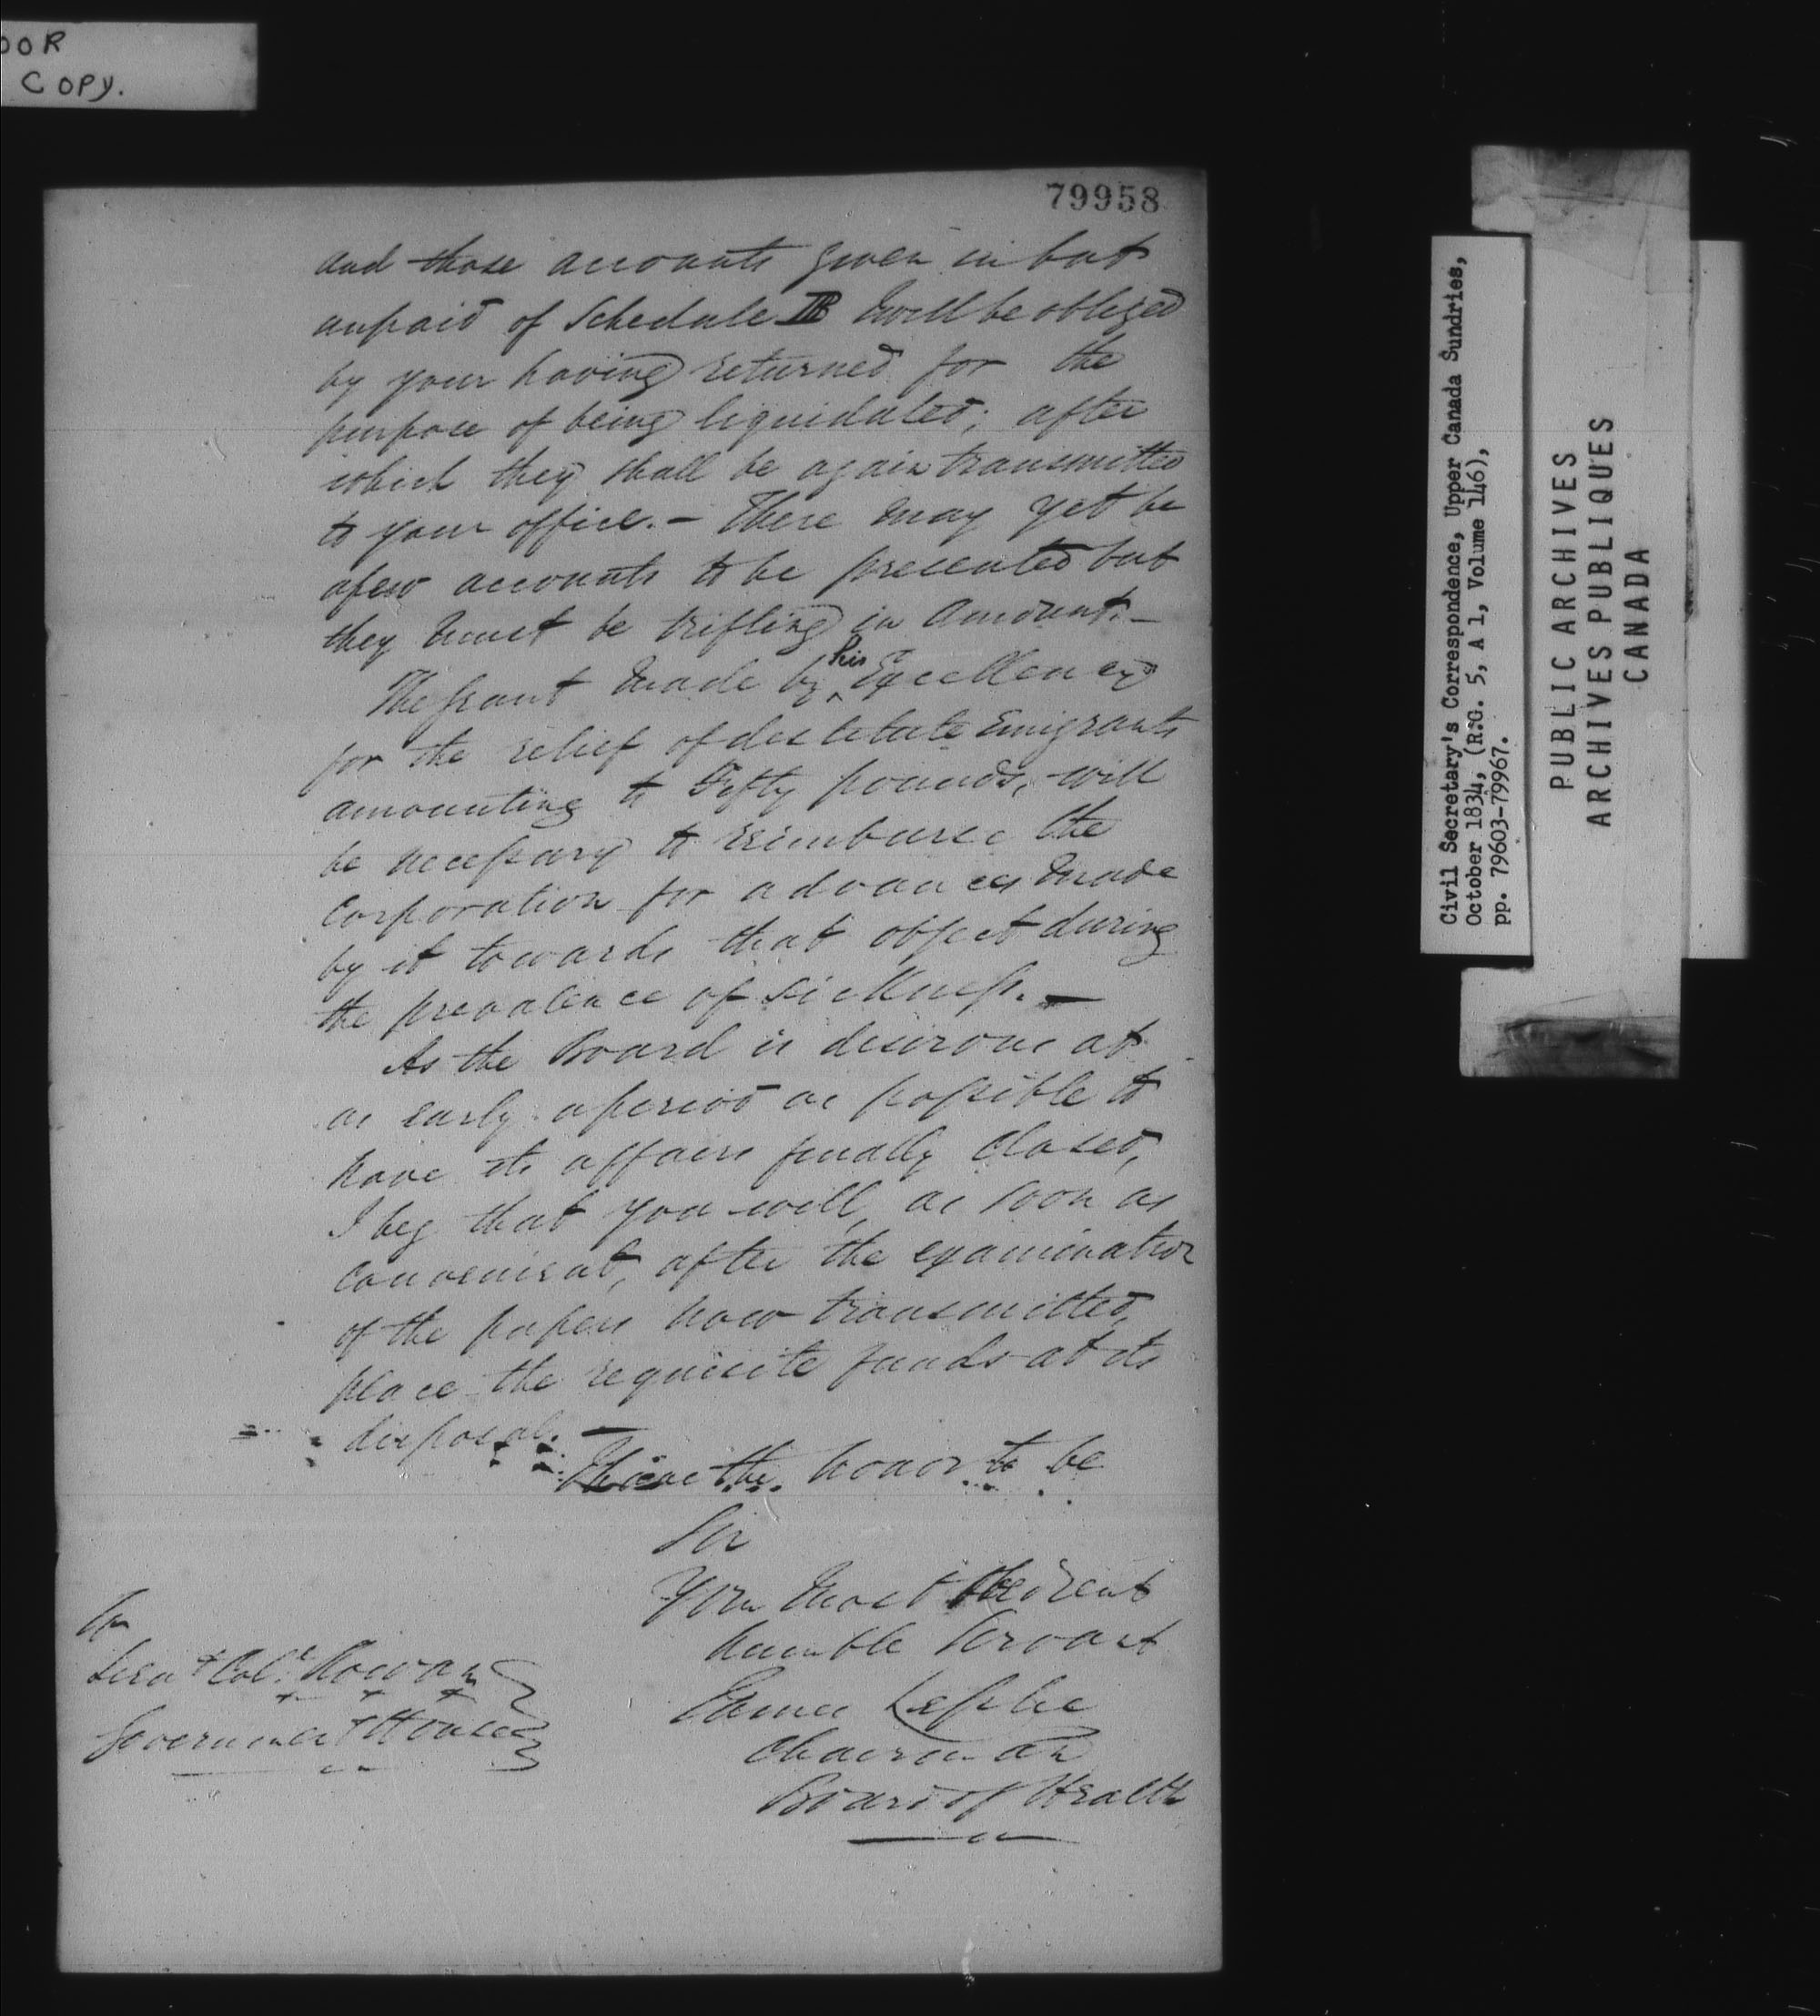 OOR
COPY.
79958
and those accounts given in but
unpaid of Schedule II I will be obliged
by your having returned for the
purpose of being liquidated; after
which they shall be again transmitted
to your office. - There may yet be
a few accounts to be presented but
they must be trifling in amount. -
The grant made by his Excellency
for the relief of destitute Emigrants
amounting to Fifty pounds, will
be necessary to reimburse the
Corporation for advances made
by it towards that object during
the prevalence of sickness. -
As the Board is desirous at
as early a period as possible to
have its affairs finally closed,
I beg that you will, as soon as
convenient, after the examination
of the papers now transmitted,
place the requisite funds at its
disposal. -
I have the honor to be
Sir
Your most obedient
humble Servant
James Leslie
Chairman
Board of Health
To
Lieut Col. Rowan
Government House
Civil Secretary's Correspondence, Upper Canada Sundries,
October 1834, (R.G. 5, A 1, Volume 146),
pp. 79603-79967.
PUBLIC ARCHIVES
ARCHIVES PUBLIQUES
CANADA